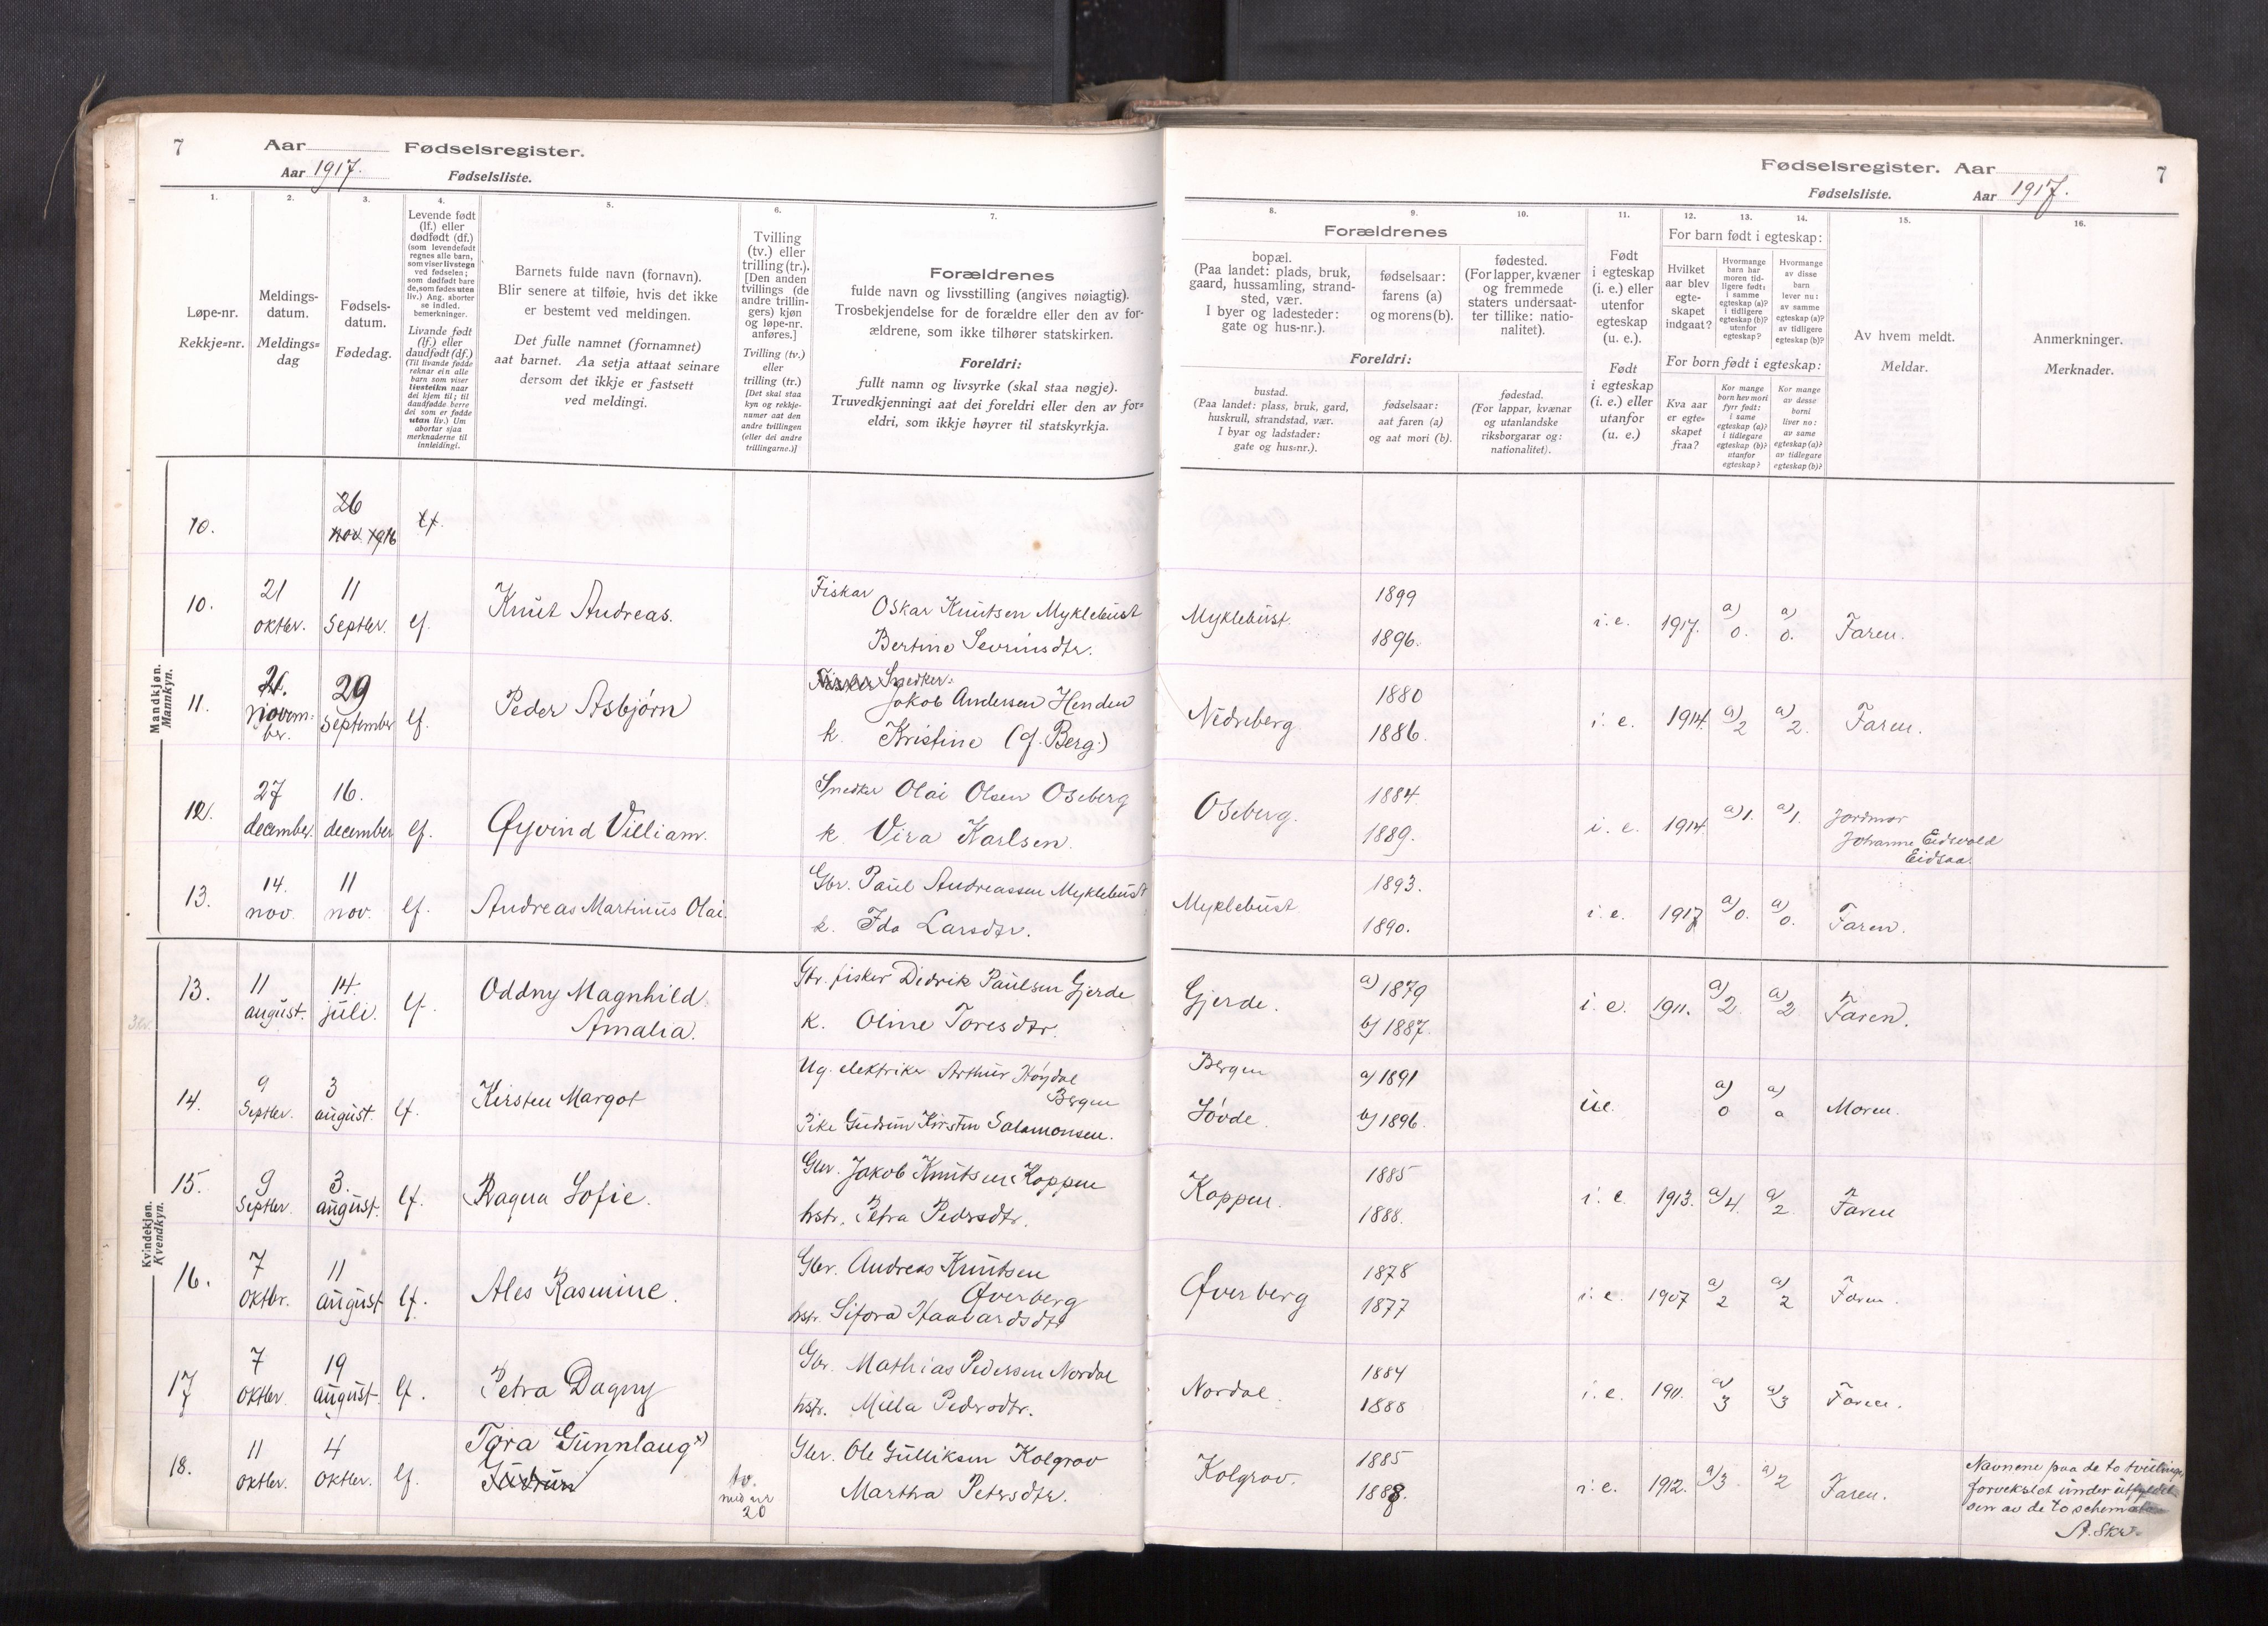 7 Aar Fødselsregister.
Aar 1917. Fødselsliste.
1. 2. 3. 4. 5. 6. 7.
Løpe-nr.
Rekkje=nr.
Meldings-
datum.
Meldings=
dag
Fødsels-
datum.
Fødedag.
Levende født
(lf.) eller
dødfødt (df.)
(som levendefødt
regnes alle barn,
som viser livstegn
ved fødselen;
som dødfødt bare
de, som fødes uten
liv.) Ang. aborter
se indled.
bemerkninger.
Livande født
(lf.) eller
daudfødt (df.)
(Til livande fødde
reknar ein alle
barn som viser
livsteikn naar
dei kjem til; til
daudfødde berre
dei som er fødde
utan liv.) Um
abortar sjaa
merknaderne til
innleidingi.
Barnets fulde navn (fornavn).
Blir senere at tilføie, hvis det ikke
er bestemt ved meldingen.
Det fulle namnet (fornamnet)
aat barnet. Aa setja attaat seinare
dersom det ikkje er fastsett
ved meldingi.
Tvilling
(tv.) eller
trilling (tr.).
[Den anden
tvillings (de
andre trillin-
gers) kjøn
og løpe-nr.
anføres.]
Tvilling (tv.)
eller
trilling (tr.)
[Det skal staa
kyn og rekkje-
numer aat den
andre tvillingen
(eller dei andre
trillingarne.)]
Forældrenes
fulde navn og livsstilling (angives nøiagtig).
Trosbekjendelse for de forældre eller den av for-
ældrene, som ikke tilhører statskirken.
Foreldri:
fullt namn og livsyrke (skal staa nøgje).
Truvedkjenningi aat dei foreldri eller den av for=
eldri, som ikkje høyrer til statskyrkja.
Mandkjøn.
Mannkyn.
10. 26 lf.
nov. 1916
10. 21 11 Knut Andreas. Fiskar
oktbr. Septbr. lf. Oskar Knutsen Myklebust
Bertine Sevrinsdtr.
11. 21. 29 Peder Asbjørn Snedker
novem- September lf. Jakob Andersen Henden
br. k. Kristine (f. Berg.)
12. 27 16. Øyvind Villiam. Snedker Olai Olsen Oseberg
december. december lf. k. Vira Karlsen.
13. 14. 11 Andreas Martinus Olai. Gbr. Paul Andreassen Myklebust
nov. nov. lf. k. Ida Larsdtr.
Kvindekjøn.
Kvendkyn.
13. 11 14. Oddny Magnhild Gbr. fisker Didrik Paulsen Gjerde
august. juli. lf. Amalia. k. Oline Toresdtr.
14. 9 3 Kirsten Margot Ug. elektriker Arthur Høydal
Septbr. august. lf. Bergen
Pike Gudrun Kirstin Salamonsen.
15. 9 3. Ragna Sofie. Gbr. Jakob Knutsen Koppen
Septbr. august. lf. hstr. Petra Pedersdtr.
16. 7 11 Ales Rasmine. Gbr. Andreas Knutsen
oktbr. august lf. Øverberg
hstr. Sifora Haavardsdtr
17 7 19 Petra Dagny Gbr. Mathias Pedersen Nordal
oktbr. august lf. hstr. Milla Pedersdtr.
18. 11 4 Tora Gunnlaug x) tv. Gbr. Ole Gulliksen Kolgrov
oktbr. oktbr. lf. Gudrun med nr Martha Petersdtr.
20
Fødselsregister. Aar 7
Fødselsliste. Aar 1917.
8. 9. 10. 11. 12. 13. 14. 15. 16.
Forældrenes
bopæl.
(Paa landet: plads, bruk,
gaard, hussamling, strand-
sted, vær.
I byer og ladesteder:
gate og hus-nr.).
fødselsaar:
farens (a)
og morens (b).
fødested.
(For lapper, kvæner
og fremmede
staters undersaat-
ter tillike: natio-
nalitet).
Foreldri:
bustad.
(Paa landet: plass, bruk, gard,
huskrull, strandstad, vær.
I byar og ladstader:
gate og hus=nr.).
fødselsaar:
aat faren (a)
og aat mori (b).
fødestad.
(For lappar, kvænar
og utanlandske
riksborgarar og:
nationalitet).
Født
i egteskap
(i. e.) eller
utenfor
egteskap
(u. e.).
Født
i egteskap
(i. e.) eller
utanfor
(u. e.)
For barn født i egteskap:
Hvilket
aar blev
egte-
skapet
indgaat?
Hvormange
barn har
moren tid-
ligere født:
i samme
egteskap (a)?
i tidligere
egteskap (b)?
utenfor
egteskap?
Hvormange
av disse
barn
lever nu:
av samme
egteskap (a)?
av tidligere
egteskap (b)?
For born født i egteskap:
Kva aar
er egte=
skapet
fraa?
Kor mange
born hev mori
fyrr født:
i same
egteskap (a)?
i tidlegare
egteskap (b)?
utanfor
egteskap?
Kor mange
av desse
borni
liver no:
av same
egteskap (a)?
av tidlegare
egteskap (b)?
Av hvem meldt.
Meldar.
Anmerkninger.
Merknader.
Myklebust. 1899 i. e. 1917. a) 0. a) 0. Faren.
1896.
Nedreberg 1880 i. e. 1914. a) 2 a) 2. Faren.
1886.
Oseberg. 1884 i. e. 1914. a) 1. a) 1. Jordmor
1889. Johanne Eidsvold
Eidsaa.
Myklebust 1893. i. e. 1917 a) 0. a) 0. Faren.
1890.
Gjerde. a) 1879 i. e. 1911. a) 2. a) 2 Faren.
b) 1887.
Bergen a) 1891 u.e. a) 0 a) 0 Moren.
Søvde. b) 1896.
Koppen. 1885 i. e. 1913. a) 4. a) 2. Faren
1888.
Øverberg 1878 i. e. 1907 a) 2 a) 2 Faren.
1877
Nordal. 1884 i. e. 1911. a) 3 a) 3 Faren.
1888
Kolgrov. 1885 i. e. 1912. a) 3. a) 2 Faren.
1888.
Navnene paa de to tvillinger
forvekslet under utfyldel-
sen av de to schema
A. Skr.